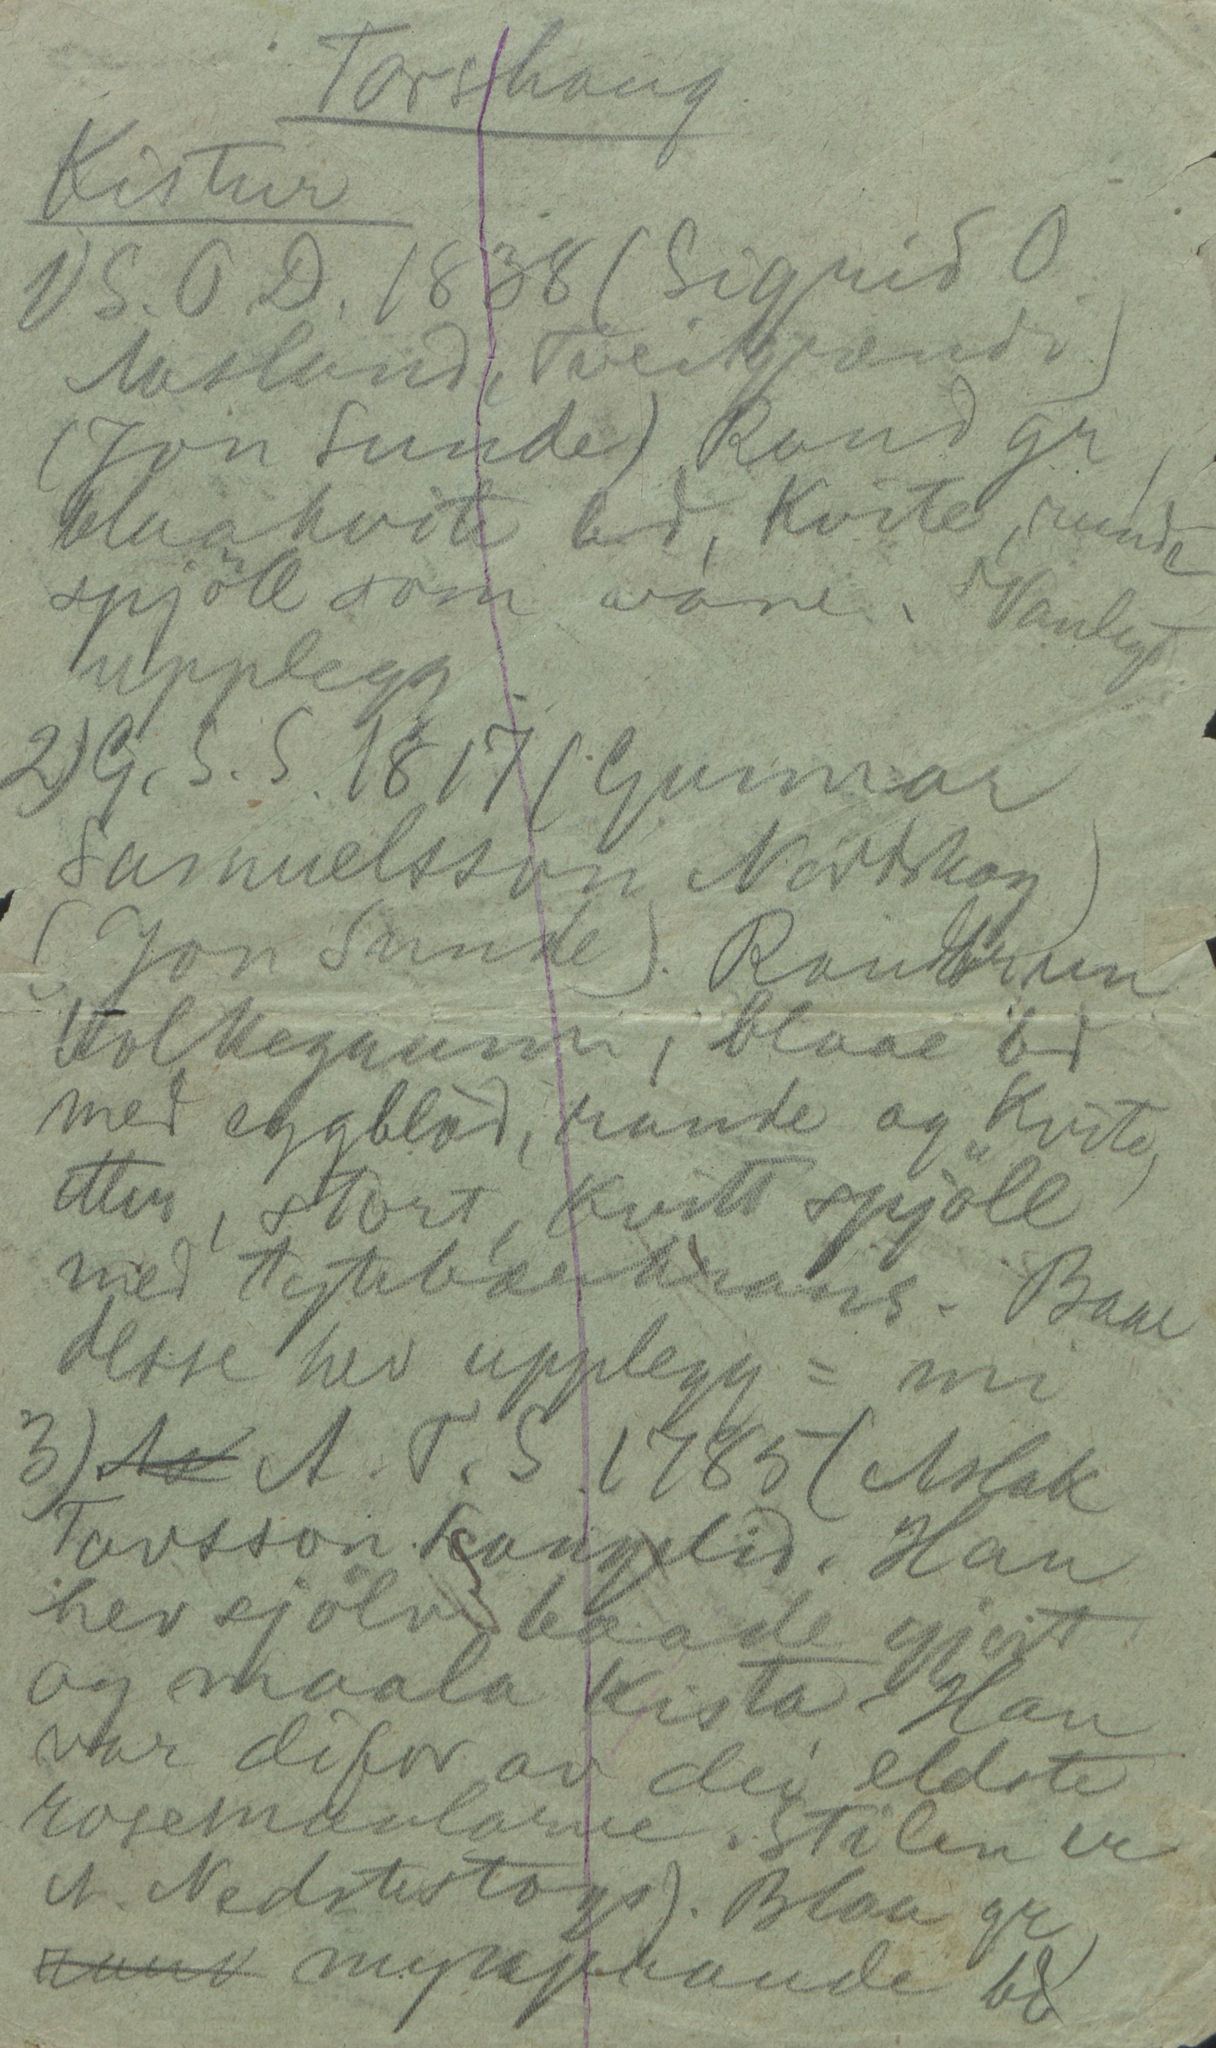 Torshaug
Kistur
1) S. O D. 1838 (Sigrid O.
Aasland, Tveitgrendi)
(Jon Sunde) Raud gr,
blaakvite bd, kvite, runde
spjöll som våne. Vanlegt
upplegg
2) G. S. S. 1817 (Gunnar
Samuelsson Nordskog)
(Jon Sunde). Raudbrun
botnegrunn, blaae bd
med eggblöd, runde og kvite,
, stort, kvitt spjöll
med tytebærkrans. Baae
desse hev upplegg = mi
3) A. T. S. 1785 (Aslak
Torsson Haugelid. Han
hev sjölv baade gjort
og maala kista. Han
var difor av dei eldste
rosemaalarne. Stilen er
A. Nedstestogs). Blaa gr
raud mykjeraude bd